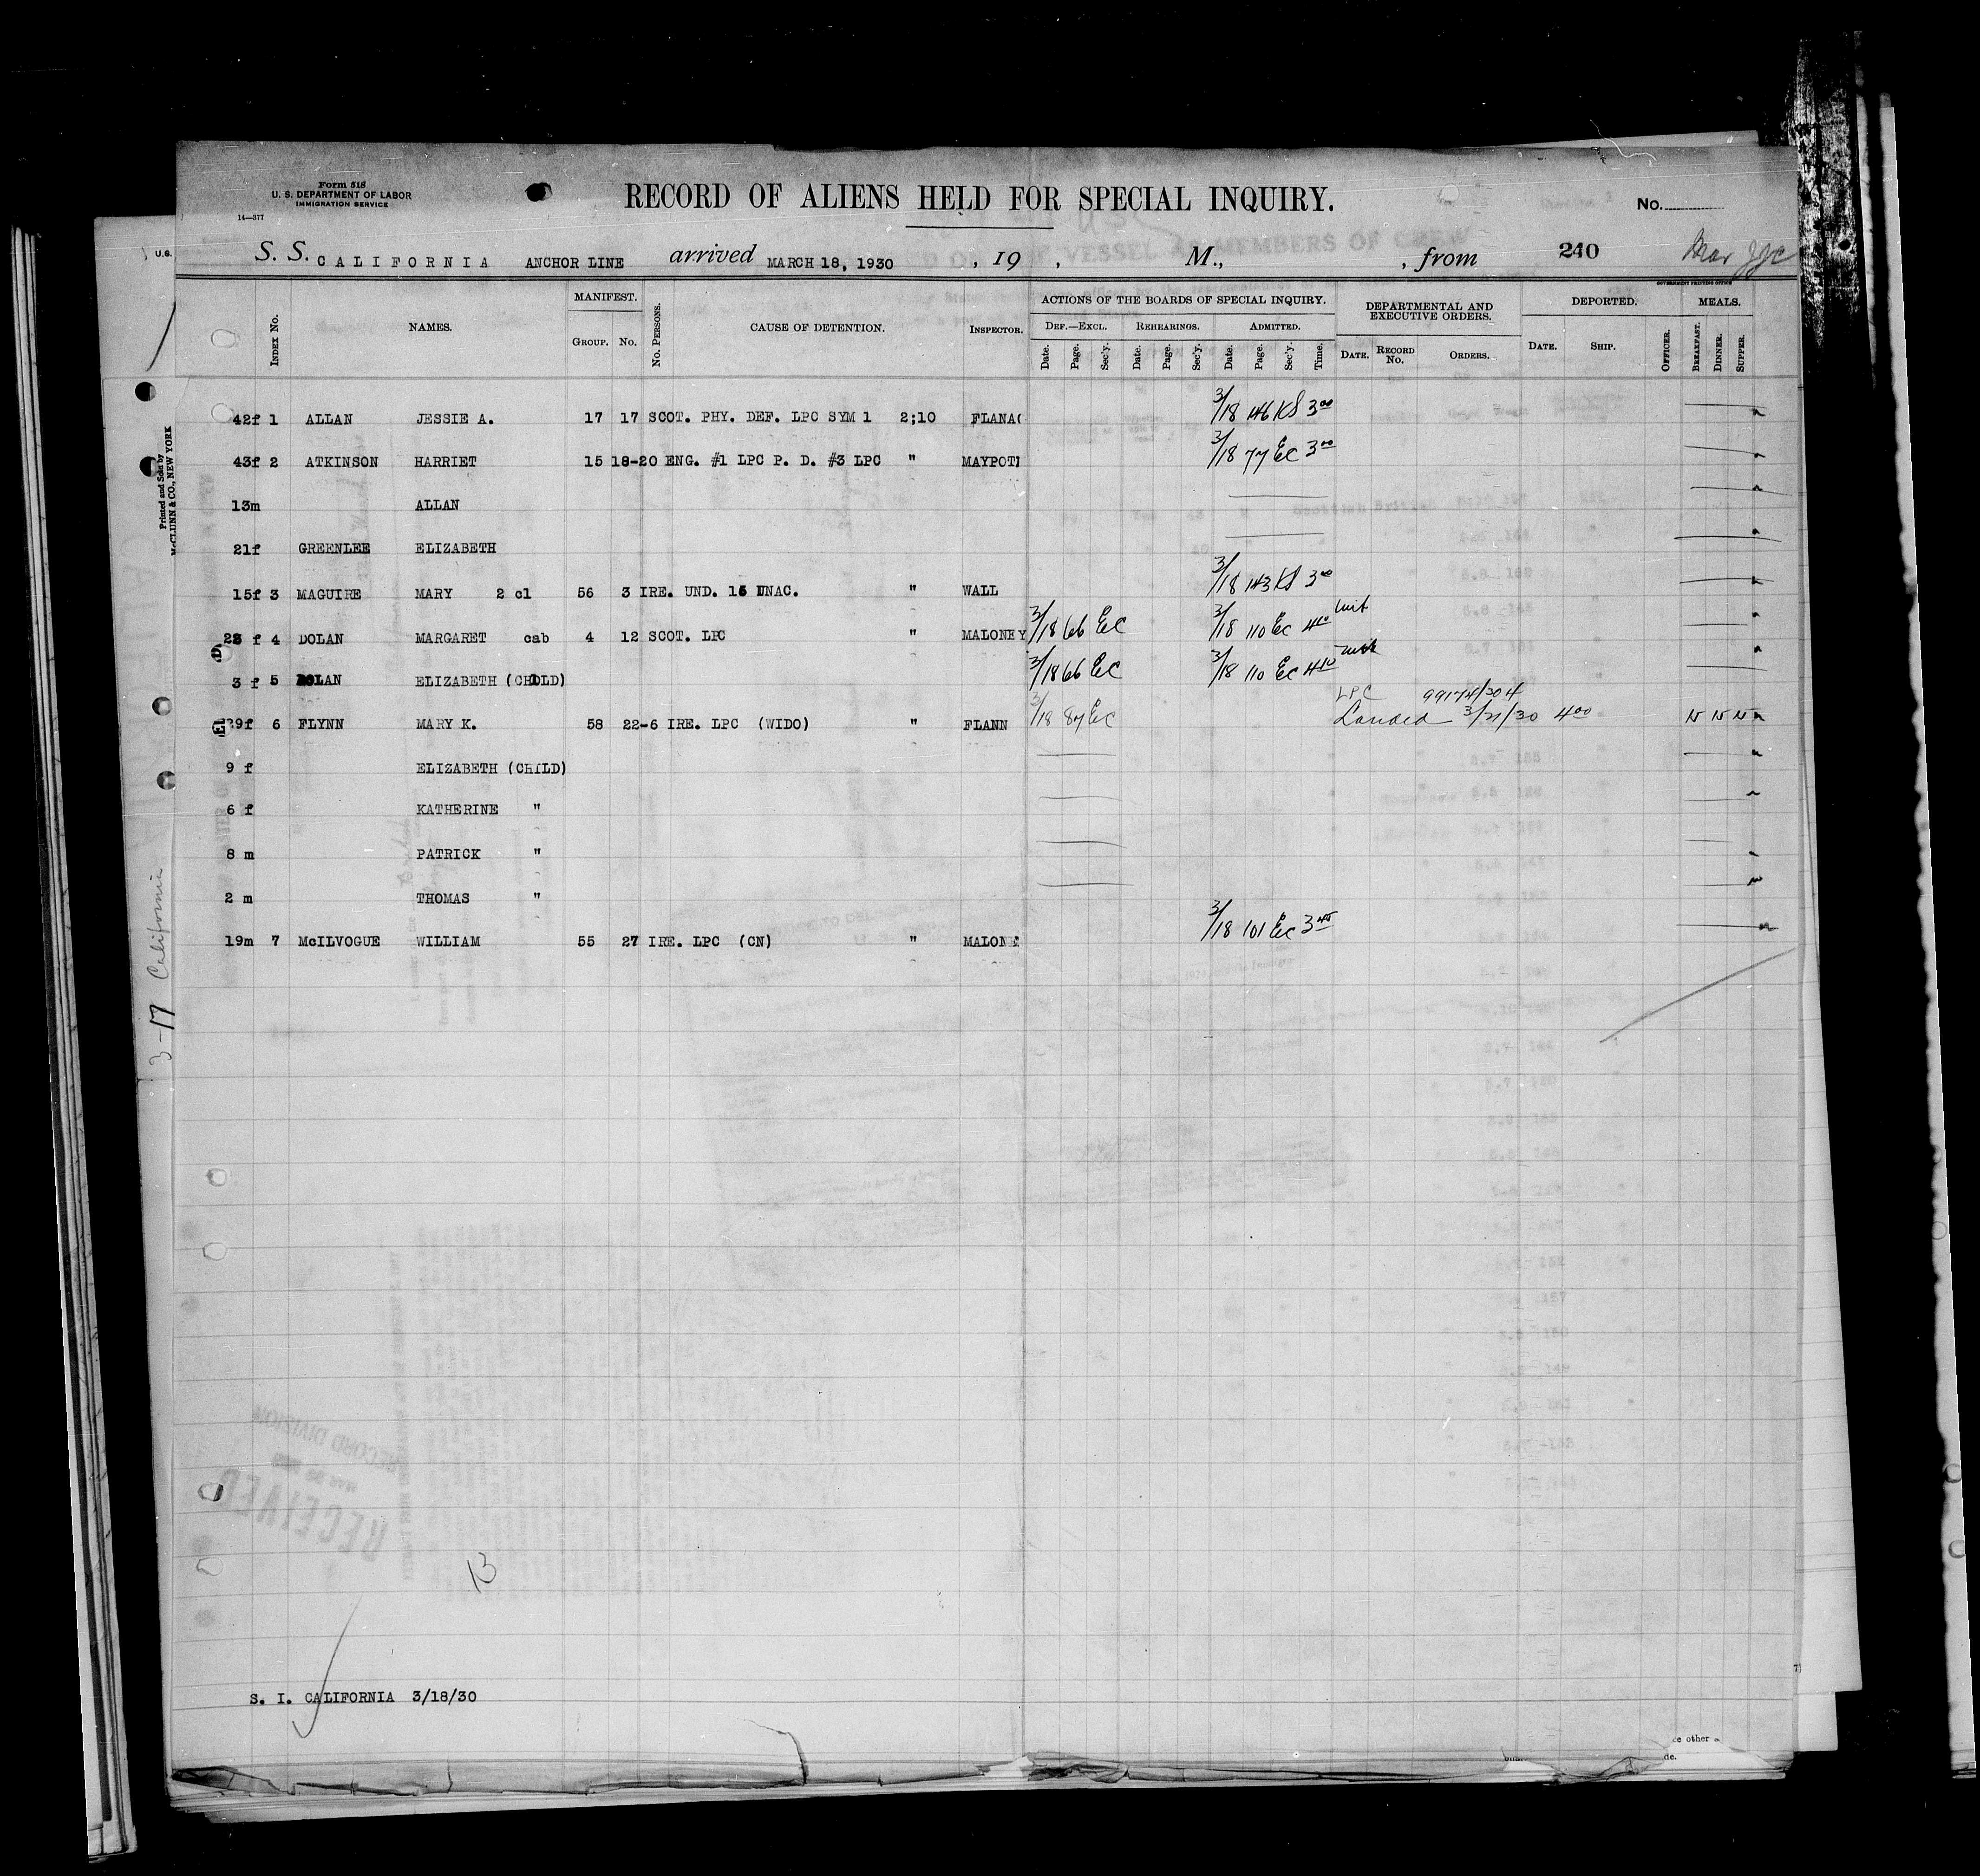 Form 518
U. S. DEPARTMENT OF LABOR
IMMIGRATION SERVICE
14—377
RECORD OF ALIENS HELD FOR SPECIAL INQUIRY.
No.
U.S.
S. S. CALIFORNIA ANCHOR LINE arrived MARCH 18, 1930 , 19 , M., , from 240
GOVERNMENT PRINTING OFFICE
INDEX No. NAMES. MANIFEST. GROUP. No. No. PERSONS. CAUSE OF DETENTION. INSPECTOR. ACTIONS OF THE BOARDS OF SPECIAL INQUIRY. DEPARTMENTAL AND EXECUTIVE ORDERS. DEPORTED. MEALS.
DEF.—EXCL. REHEARINGS. ADMITTED.
Date. Page. Sec'y. Date. Page. Sec'y. Date. Page. Sec'y. Time. DATE. RECORD No. ORDERS. DATE. SHIP. OFFICER. BREAKFAST. DINNER. SUPPER.
42f 1 ALLAN JESSIE A. 17 17 SCOT. PHY. DEF. LPC SYM 1 2;10 FLANA 3/18 146 KS 3 00
43f 2 ATKINSON HARRIET 15 18-20 ENG. #1 LPC P. D. #3 LPC " MAYPOT 3/18 77 EC 3 00
13m ALLAN
21f GREENLEE ELIZABETH
15f 3 MAGUIRE MARY 2 cl 56 3 IRE. UND. 16 UNAC. " WALL 3/18 143 KS 3 00
f 4 DOLAN MARGARET cab 4 12 SCOT. LPC " MALONEY 3/18 66 EC 3/18 110 EC 4 10
3 f 5 DOLAN ELIZABETH (CHILD) 3/18 66 EC 3/18 110 EC 4 10
LPC
39f 6 FLYNN MARY K. 58 22-6 IRE. LPC (WIDO) " FLANN 3/18 87 EC Landed 3/21/30 4 00
9 f ELIZABETH (CHILD)
6 f KATHERINE "
8 m PATRICK "
2 m THOMAS "
19m 7 McILVOGUE WILLIAM 55 27 IRE. LPC (CN) " MALONE 3/18 101 EC 3 45
Printed and Sold by
McCLUNN & CO., NEW YORK
3-17 California
13
S. I. CALIFORNIA 3/18/30